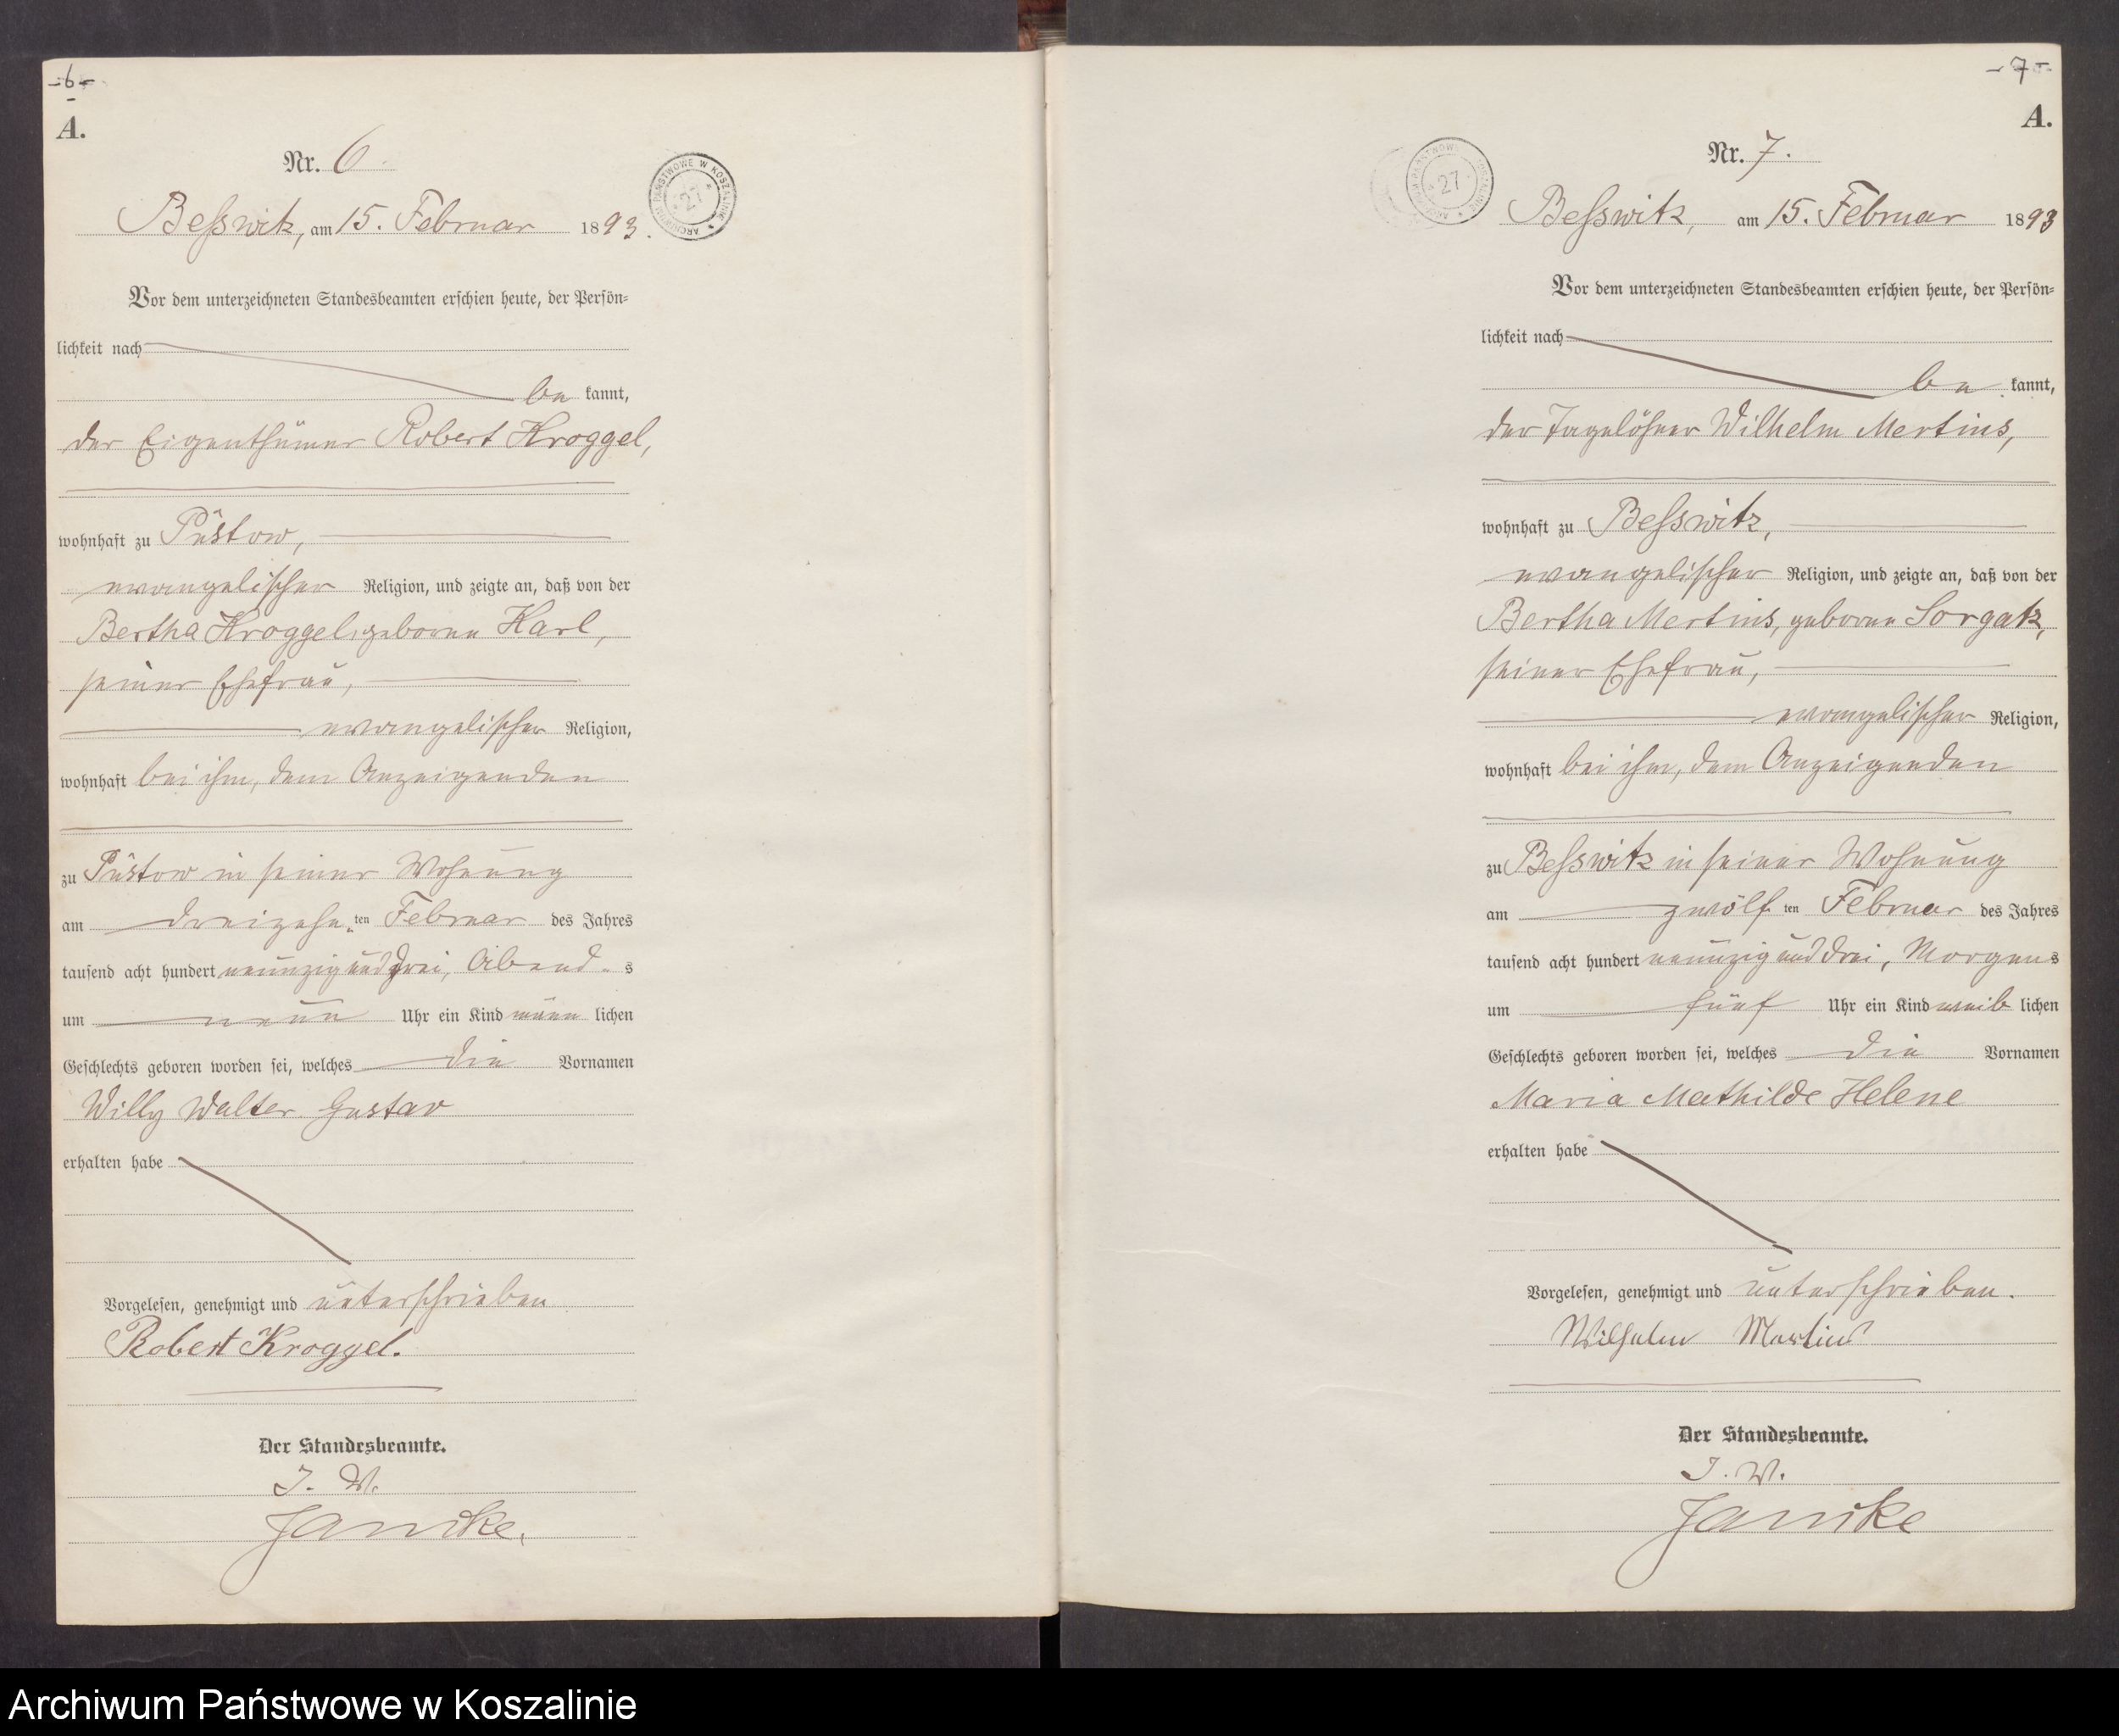 -6-
A.
Nr. 6
Beßwitz, am 15. Februar 1893.
ARCHIWUM PAŃSTWOWE W KOSZALINIE
27
Vor dem unterzeichneten Standesbeamten erschien heute, der Persön-
lichkeit nach
be kannt,
der Eigenthümer Robert Kroggel,
wohnhaft zu Püstow,
evangelischer Religion, und zeigte an, daß von der
Bertha Kroggel, geborene Karl,
seiner Ehefrau,
evangelischer Religion,
wohnhaft bei ihm, dem Anzeigenden
zu Püstow in seiner Wohnung
am dreizehn ten Februar des Jahres
tausend acht hundert neunzig und drei, Abend s
um neun Uhr ein Kind männ lichen
Geschlechts geboren worden sei, welches die Vornamen
Willy Walter Gustav
erhalten habe
Vorgelesen, genehmigt und unterschrieben
Robert Kroggel.
Der Standesbeamte.
J. V.
Jancke.
-7-
A.
Nr. 7.
27
Beßwitz, am 15. Februar 1893
Vor dem unterzeichneten Standesbeamten erschien heute, der Persön-
lichkeit nach
be kannt,
der Tagelöhner Wilhelm Mertins,
wohnhaft zu Beßwitz,
evangelischer Religion, und zeigte an, daß von der
Bertha Mertins, geborene Sorgatz,
seiner Ehefrau,
evangelischer Religion,
wohnhaft bei ihm, dem Anzeigenden
zu Beßwitz in seiner Wohnung
am zwölf ten Februar des Jahres
tausend acht hundert neunzig und drei, Morgens
um fünf Uhr ein Kind weib lichen
Geschlechts geboren worden sei, welches die Vornamen
Maria Mathilde Helene
erhalten habe
Vorgelesen, genehmigt und unterschrieben.
Wilhelm Mertins
Der Standesbeamte.
J. V.
Jancke
Archiwum Państwowe w Koszalinie